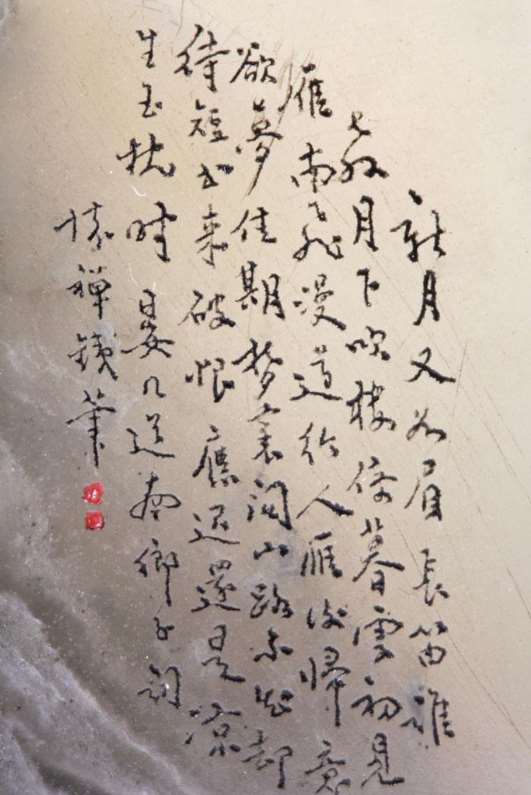 新月又如眉長笛誰
教月下吹樓倚暮雲初見
雁南飛漫道行人雁後歸意
欲夢佳期夢裏関山路不知却
待短書来破恨應遲還是凉
生玉枕時 晏几道南鄉子詞
懷禪鐵筆